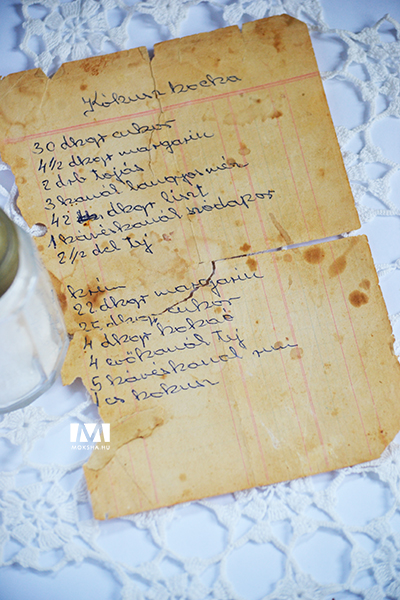 Kókusz kocka
30 dkgr cukor
4 1/2 dkgr margarin
2 drb tojás
3 kanál baracqízmés
42 dkgr liszt
1 kávéskanál szódapor
2 1/2 del tej
krém
22 dkgr margarin
25 dkgr cukor
4 dkgr kakaó
4 evőkanál tej
5 kávéskanál rum
1 cs kokusz
M
MOKSHA.HU